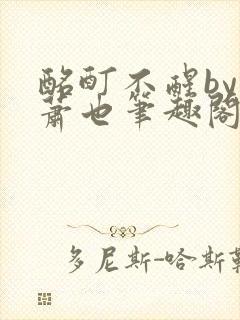 酩酊不醒by
萧也笔趣阁
多尼斯-哈斯勒